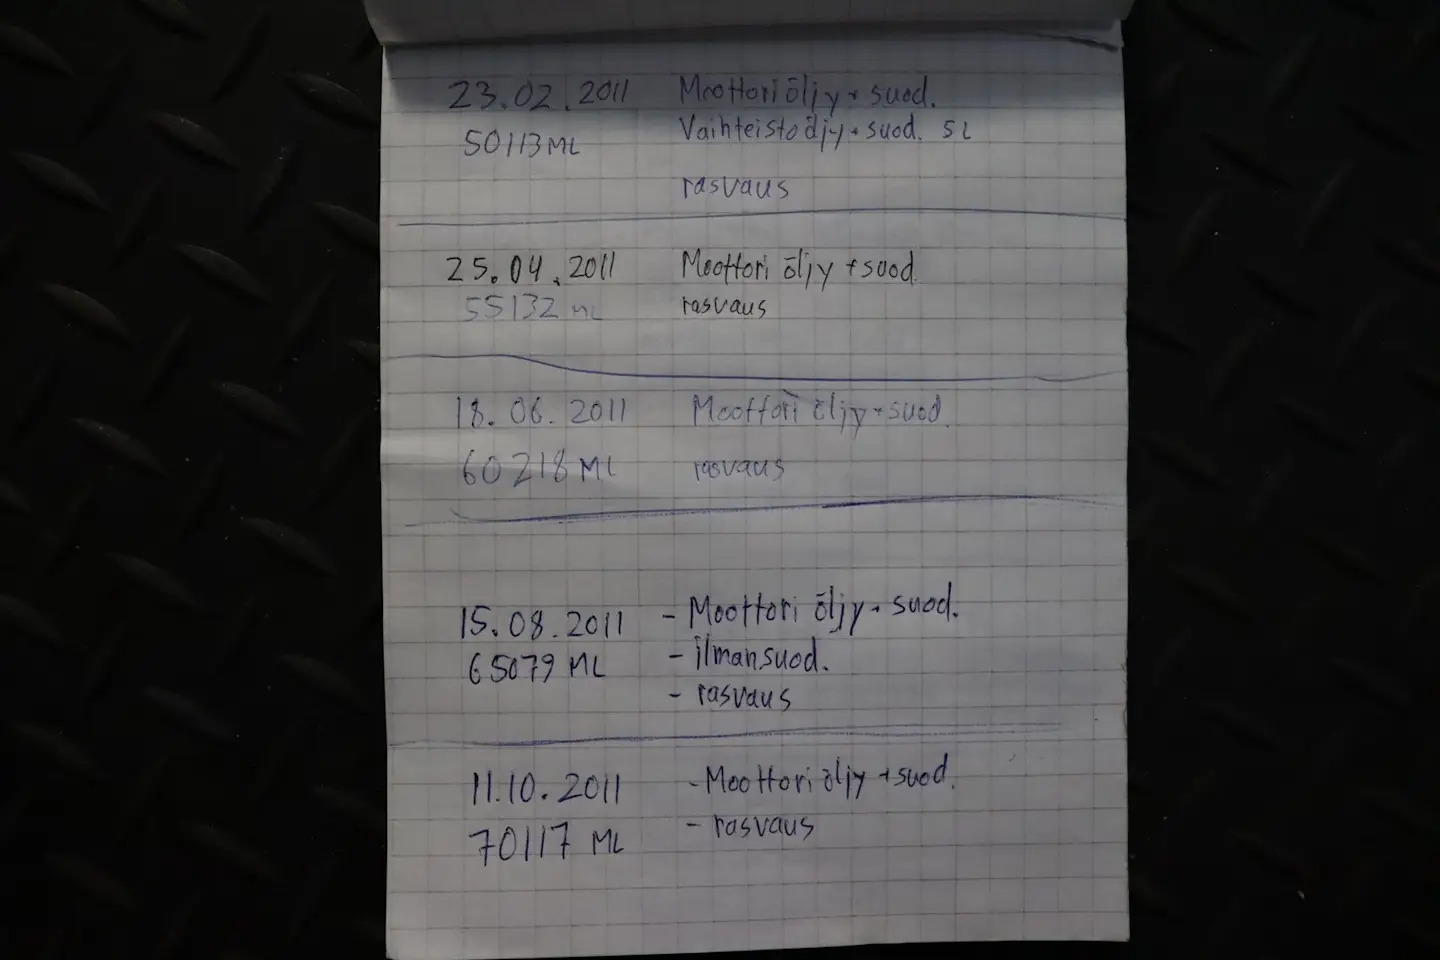 23.02.2011 Moottori öljy + suod.
50113 ML Vaihteisto öljy + suod. 5 L
rasvaus
25.04.2011 Moottori öljy + suod.
55132 ML rasvaus
18.06.2011 Moottori öljy + suod.
60218 ML rasvaus
15.08.2011 - Moottori öljy + suod.
65079 ML - ilmansuod.
- rasvaus
11.10.2011 - Moottori öljy + suod.
70117 ML - rasvaus